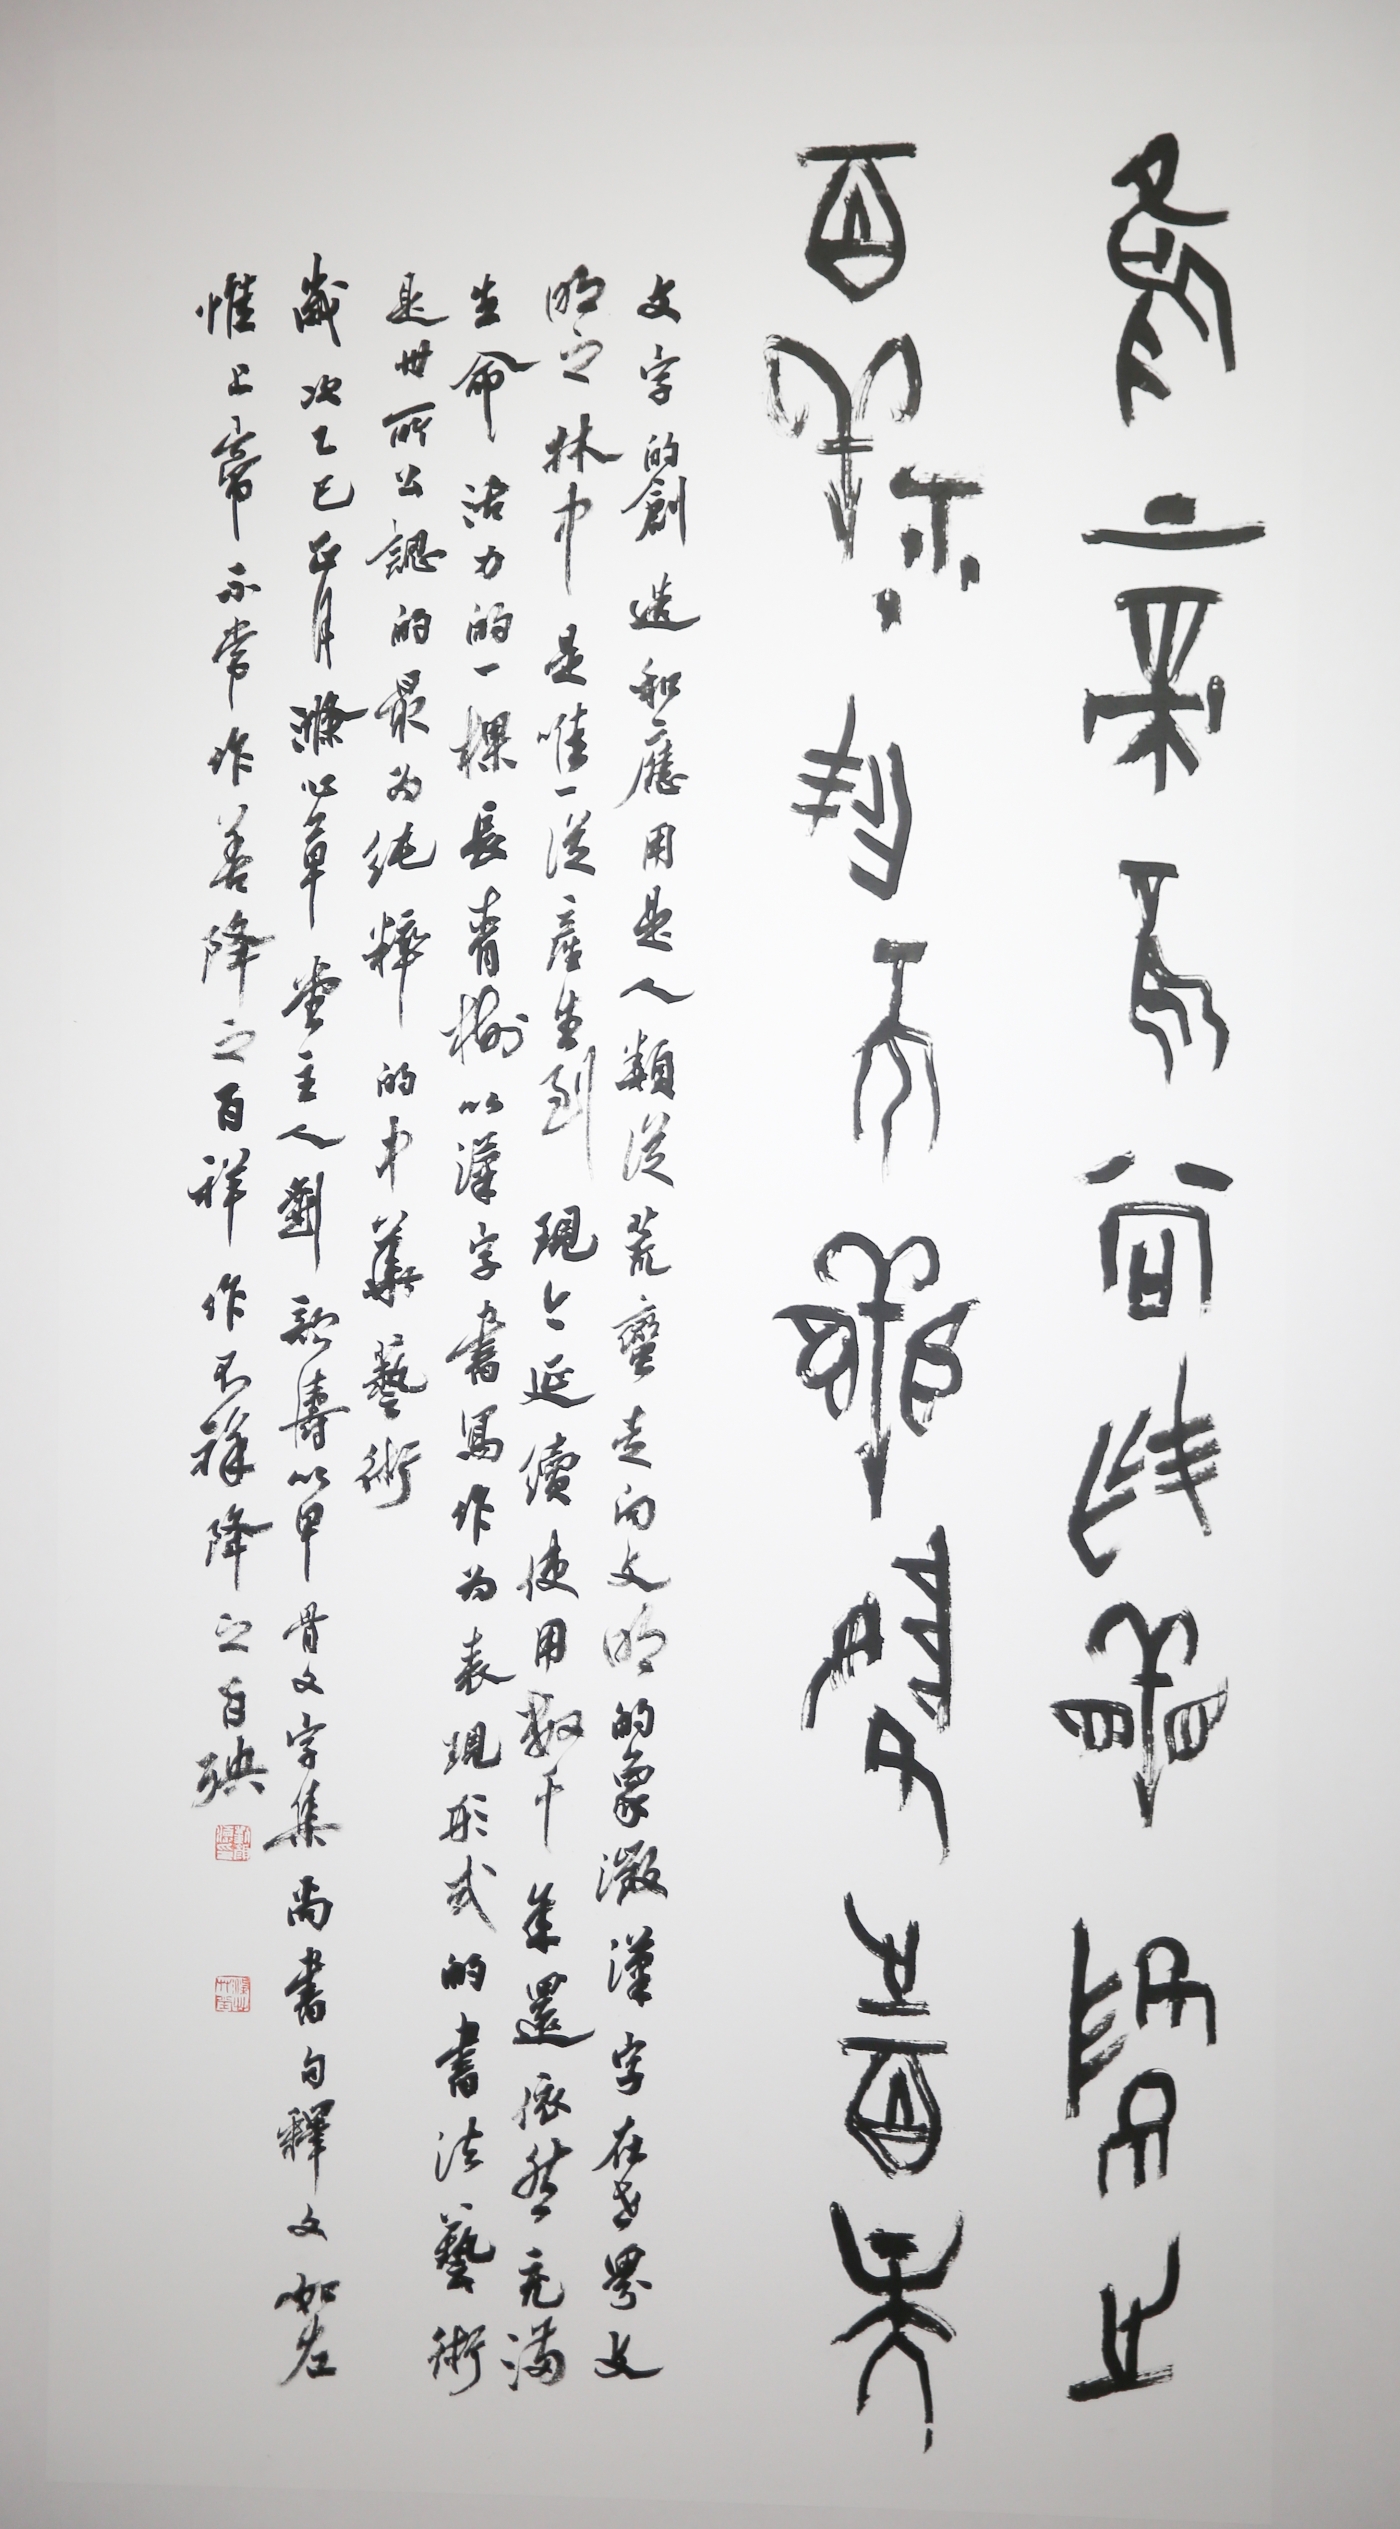 惟上帝不常作善降之
百祥作不善降之百殃
文字的創造和應用是人類從荒蠻走向文明的象徵漢字在世界文
明之林中是唯一從產生到現今延續使用數千年還依然充滿
生命活力的一棵長青樹以漢字書寫作為表現形式的書法藝術
是世所公認的最為純粹的中華藝術
歲次乙巳正月滌心草堂主人劉以甲骨文字集尚書句釋文如左
惟上帝不常作善降之百祥作不祥降之百殃